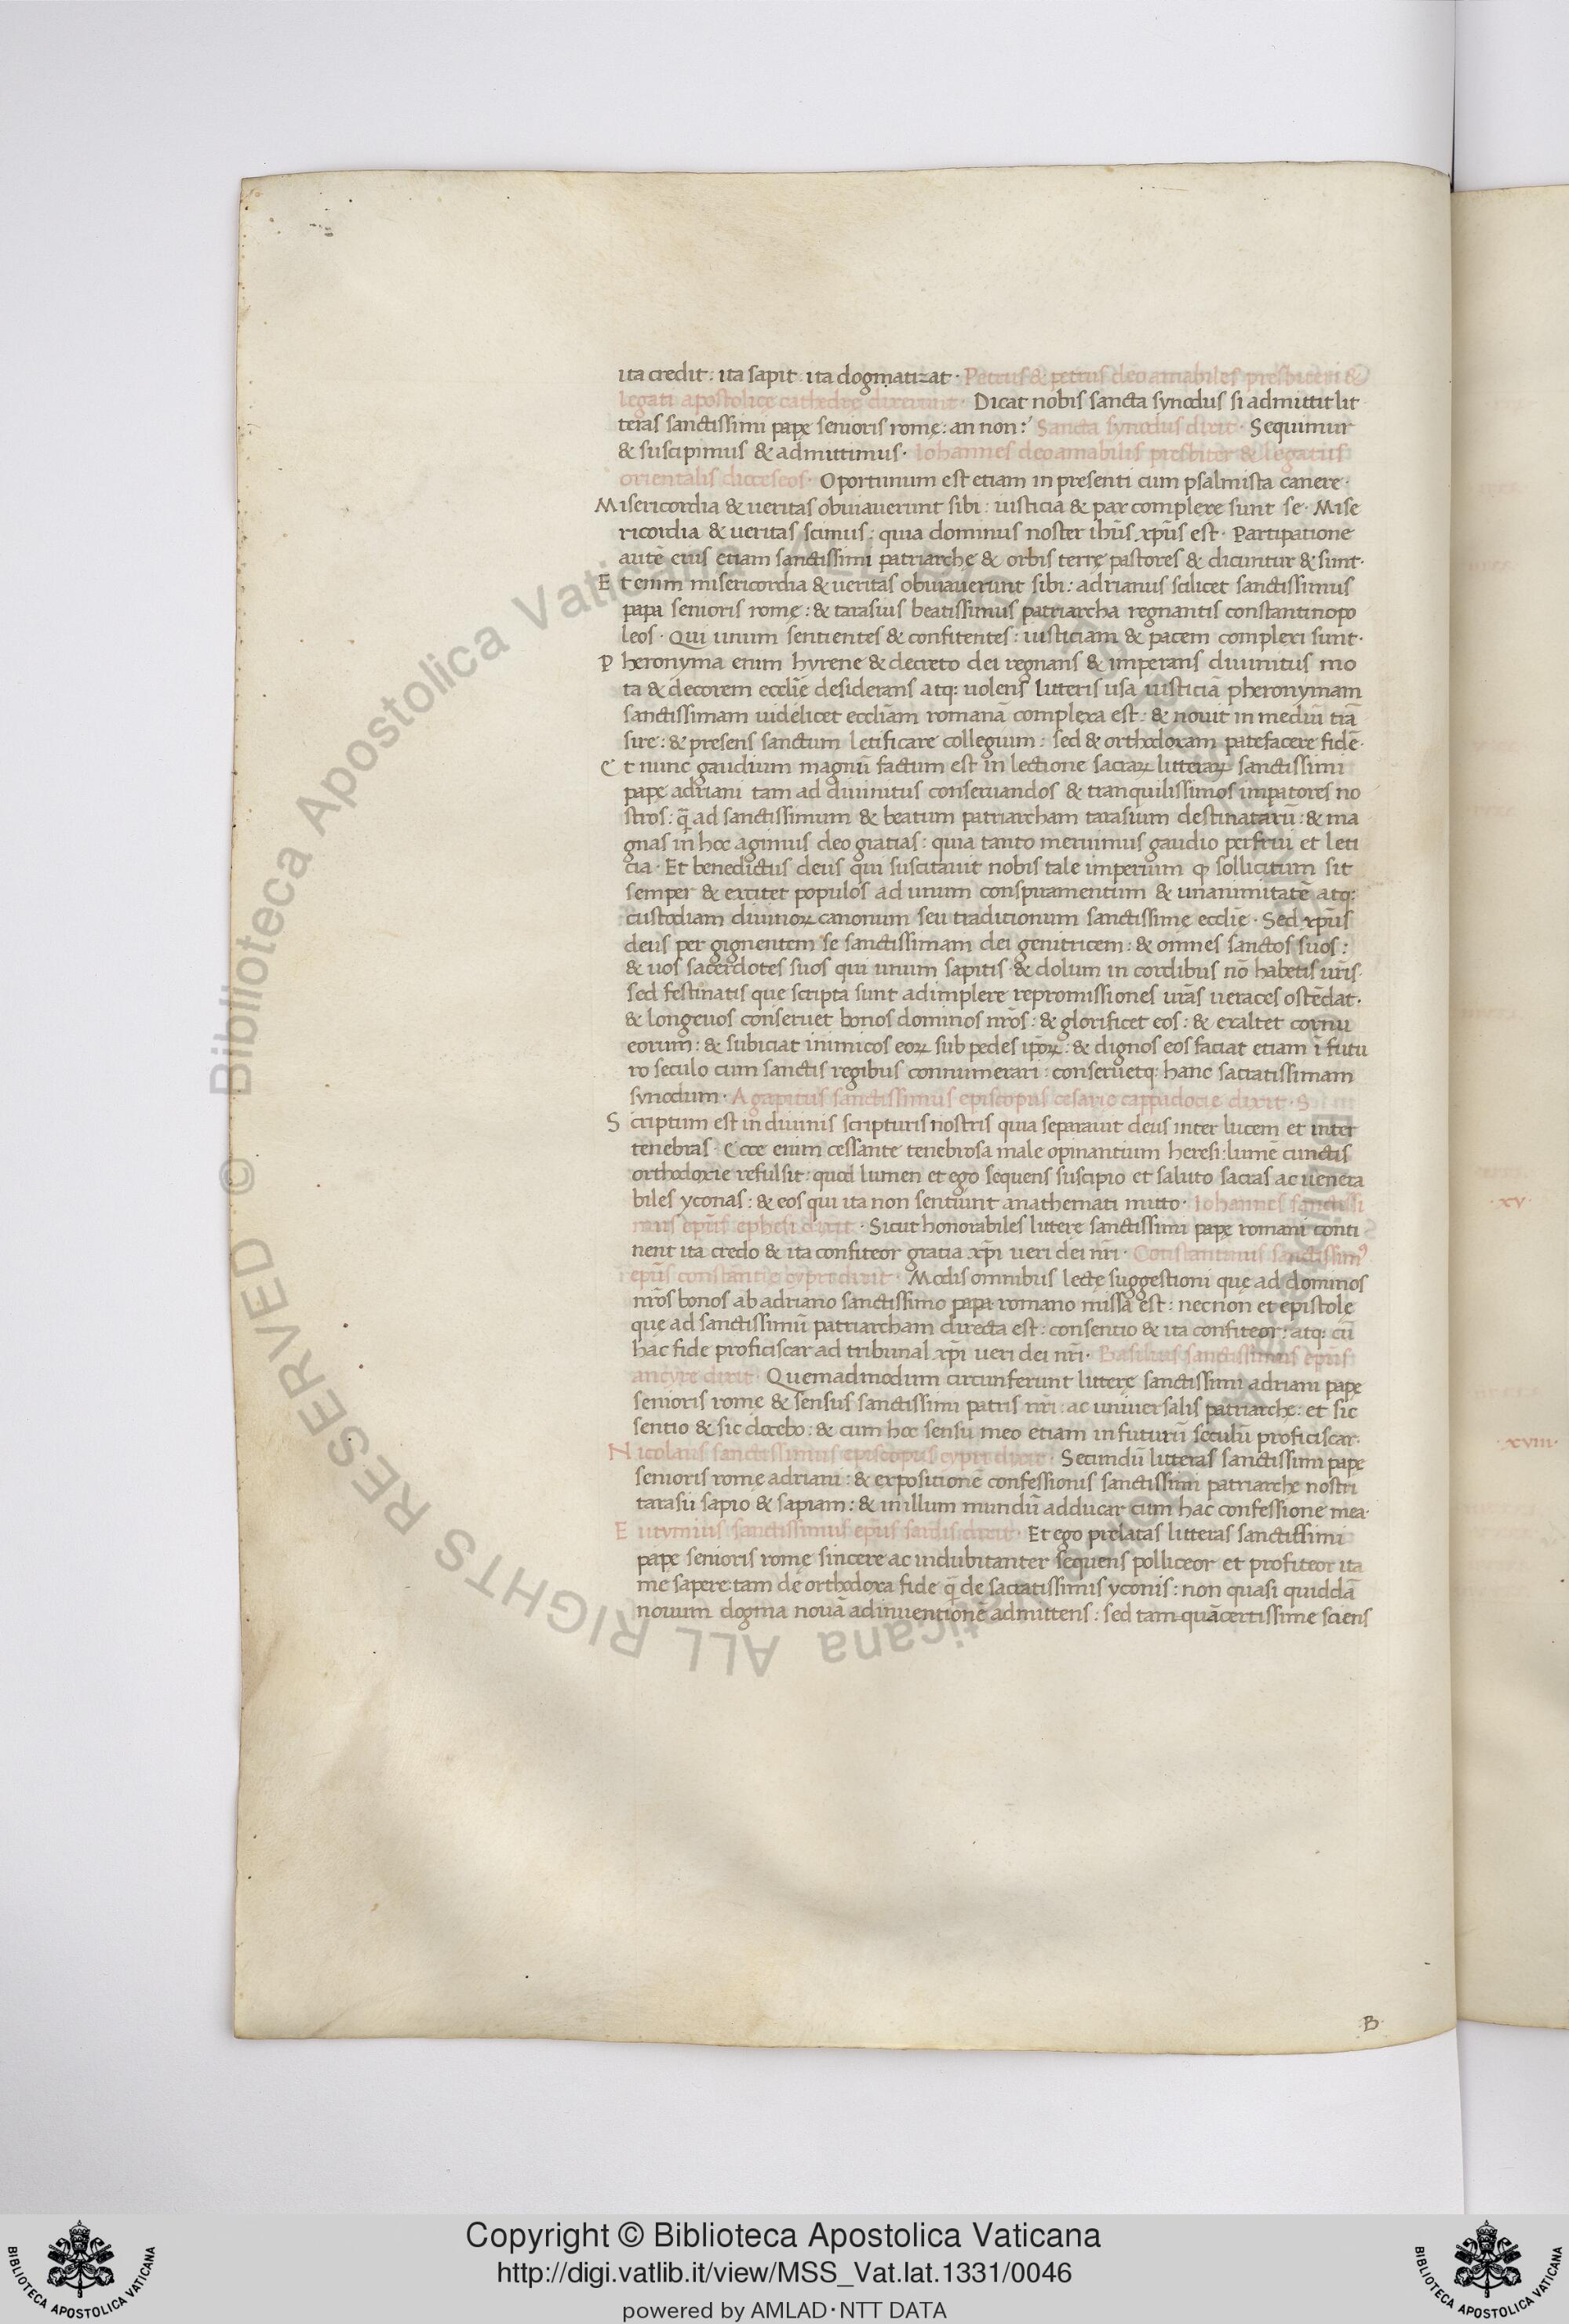 ita credit: ita sapit: ita dogmatizat · Petrus & petrus deo amabiles presbiteri &
legati apostolicę cathedrę dixerunt · Dicat nobis sancta synodus si admittit lit
teras sanctissimi papę senioris romę: an non: Sancta synodus dixit · Sequimur
& suscipimus & admittimus · Iohannes deo amabilis presbiter & legatus
orientalis dioceseos · Oportunum est etiam in presenti cum psalmista canere ·
Misericordia & ueritas obuiauerunt sibi: iusticia & pax complexe sunt se · Mise
ricordia & ueritas scimus: quia dominus noster ihūs xpūs est · Partipatione
autē eius etiam sanctissimi patriarchę & orbis terrę pastores & dicuntur & sunt ·
Et enim misericordia & ueritas obuiauerunt sibi: adrianus scilicet sanctissimus
papa senioris romę: & tarasius beatissimus patriarcha regnantis constantinopo
leos · Qui unum sentientes & confitentes: iusticiam & pacem complexi sunt ·
Pheronyma enim hyrene & decreto dei regnans & imperans diuinitus mo
ta & decorem ecclīe desiderans atq: uolens litteris usa iusticiā pheronymam
sanctissimam uidelicet eccliām romanā complexa est: & nouit in mediū trā
sire: & presens sanctum letificare collegium: sed & orthodoxam patefacere fidē ·
Et nunc gaudium magnū factum est in lectione sacraꝝ litteraꝝ sanctissimi
papę adriani tam ad diuinitus conseruandos & tranquilissimos imp̱atores no
stros: q̄ ad sanctissimum & beatum patriarcham tarasium destinatarū: & ma
gnas in hoc agimus deo gratias: quia tanto meruimus gaudio perfrui et leti
cia · Et benedictus deus qui suscitauit nobis tale imperium qͦ sollicitum sit
semper & excitet populos ad unum conspiramentum & unanimitatē atq:
custodiam diuinoꝝ canonum seu traditionum sanctissimę ecclīe · Sed xpūs
deus per gignentem se sanctissimam dei genitricem: & omnes sanctos suos:
& uos sacerdotes suos qui unum sapitis & dolum in cordibus nō habetis urīs ·
sed festinatis que scripta sunt adimplere repromissiones urās ueraces ostēdat ·
& longeuos conseruet bonos dominos nrōs: & glorificet eos: & exaltet cornu
eorum: & subiciat inimicos eoꝝ sub pedes ipōꝝ: & dignos eos faciat etiam ī futu
ro seculo cum sanctis regibus connumerari: conseruetq: hanc sacratissimam
synodum · Agapitus sanctissimus episcopus cesarie cappadocie dixit · S
Scriptum est in diuinis scripturis nostris quia separauit deus inter lucem et inter
tenebras · Ecce enim cessante tenebrosa male opinantium heresi: lumē cunctis
orthodoxie refulsit: quod lumen et ego sequens suscipio et saluto sacras ac uenera
biles yconas: & eos qui ita non sentiunt anathemati mitto · Iohannes sanctissi
mus epūs ephesi dixit · Sicut honorabiles litterę sanctissimi papę romani conti
nent ita credo & ita confiteor gratia xpī ueri dei nrī · Constantinus sanctissimꝰ
epūs constantię cypri dixit · Modis omnibus lectę suggestioni que ad dominos
nrōs bonos ab adriano sanctissimo papa romano missa est: necnon et epistolę
que ad sanctissimū patriarcham directa est: consentio & ita confiteor: atq: cū
hac fide proficiscar ad tribunal xpī ueri dei nrī · Basilius sanctissimus epūs
ancyre dixit · Quemadmodum circunferunt litterę sanctissimi adriani papę
senioris romę & sensus sanctissimi patris nrī: ac uniuersalis patriarchę: et sic
sentio & sic docebo: & cum hoc sensu meo etiam in futurū seculū proficiscar ·
Nicolaus sanctissimus episcopus cypri dixit · Secundū litteras sanctissimi papę
senioris romę adriani: & expositionē confessionis sanctissimi patriarchę nostri
tarasii sapio & sapiam: & in illum mundū adducar cum hac confessione mea ·
Eutymius sanctissimus epūs sardis dixit · Et ego prelatas litteras sanctissimi
papę senioris romę sincere ac indubitanter sequens polliceor et profiteor ita
me sapere tam de orthodoxa fide q̄ de sacratissimis yconis: non quasi quiddā
nouum dogma nouā adinuentionē admittens: sed tam quā certissime sciens
B
· xv ·
· xviii ·
© Biblioteca Apostolica Vaticana ALL RIGHTS RESERVED
Copyright © Biblioteca Apostolica Vaticana
http://digi.vatlib.it/view/MSS_Vat.lat.1331/0046
powered by AMLAD·NTT DATA
BIBLIOTECA APOSTOLICA VATICANA
BIBLIOTECA APOSTOLICA VATICANA